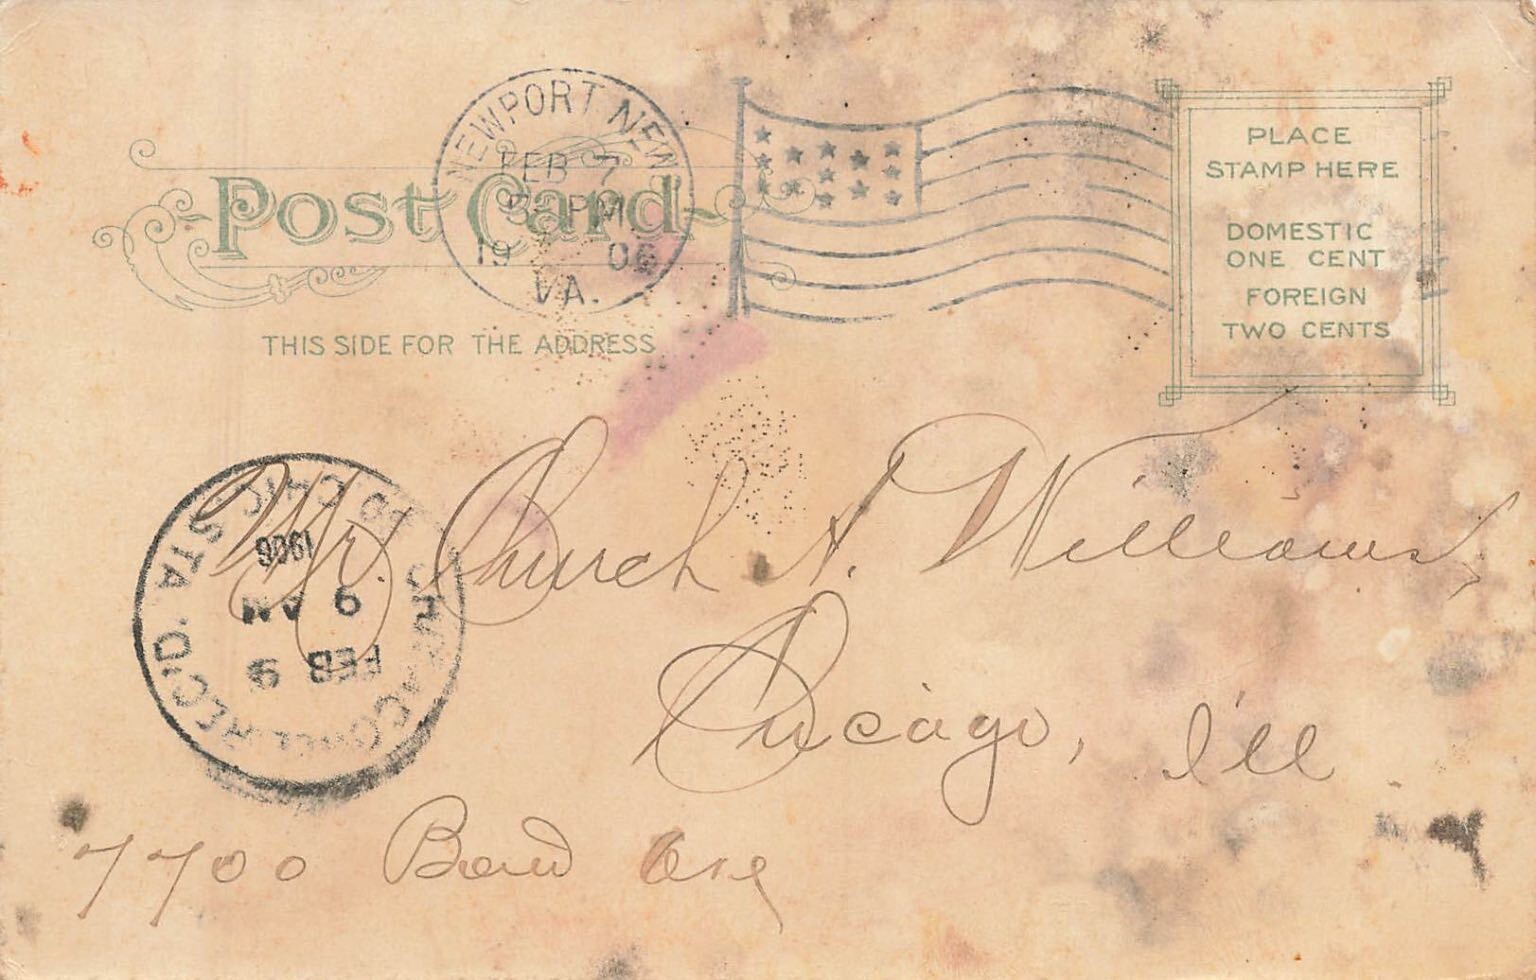 NEWPORT NEW
FEB 7
PM
19 06
VA.
Post Card
THIS SIDE FOR THE ADDRESS
PLACE
STAMP HERE
DOMESTIC
ONE CENT
FOREIGN
TWO CENTS
Mr. Church A. Williams,
Chicago, Ill
7700 Bond Ave
REC'D.
STA.
CHIC
1906
9 AM
FEB 9